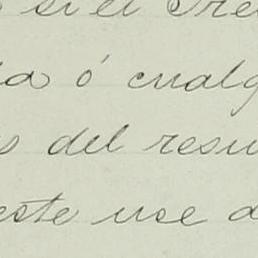 si el
ó cualq
del resu
este use d